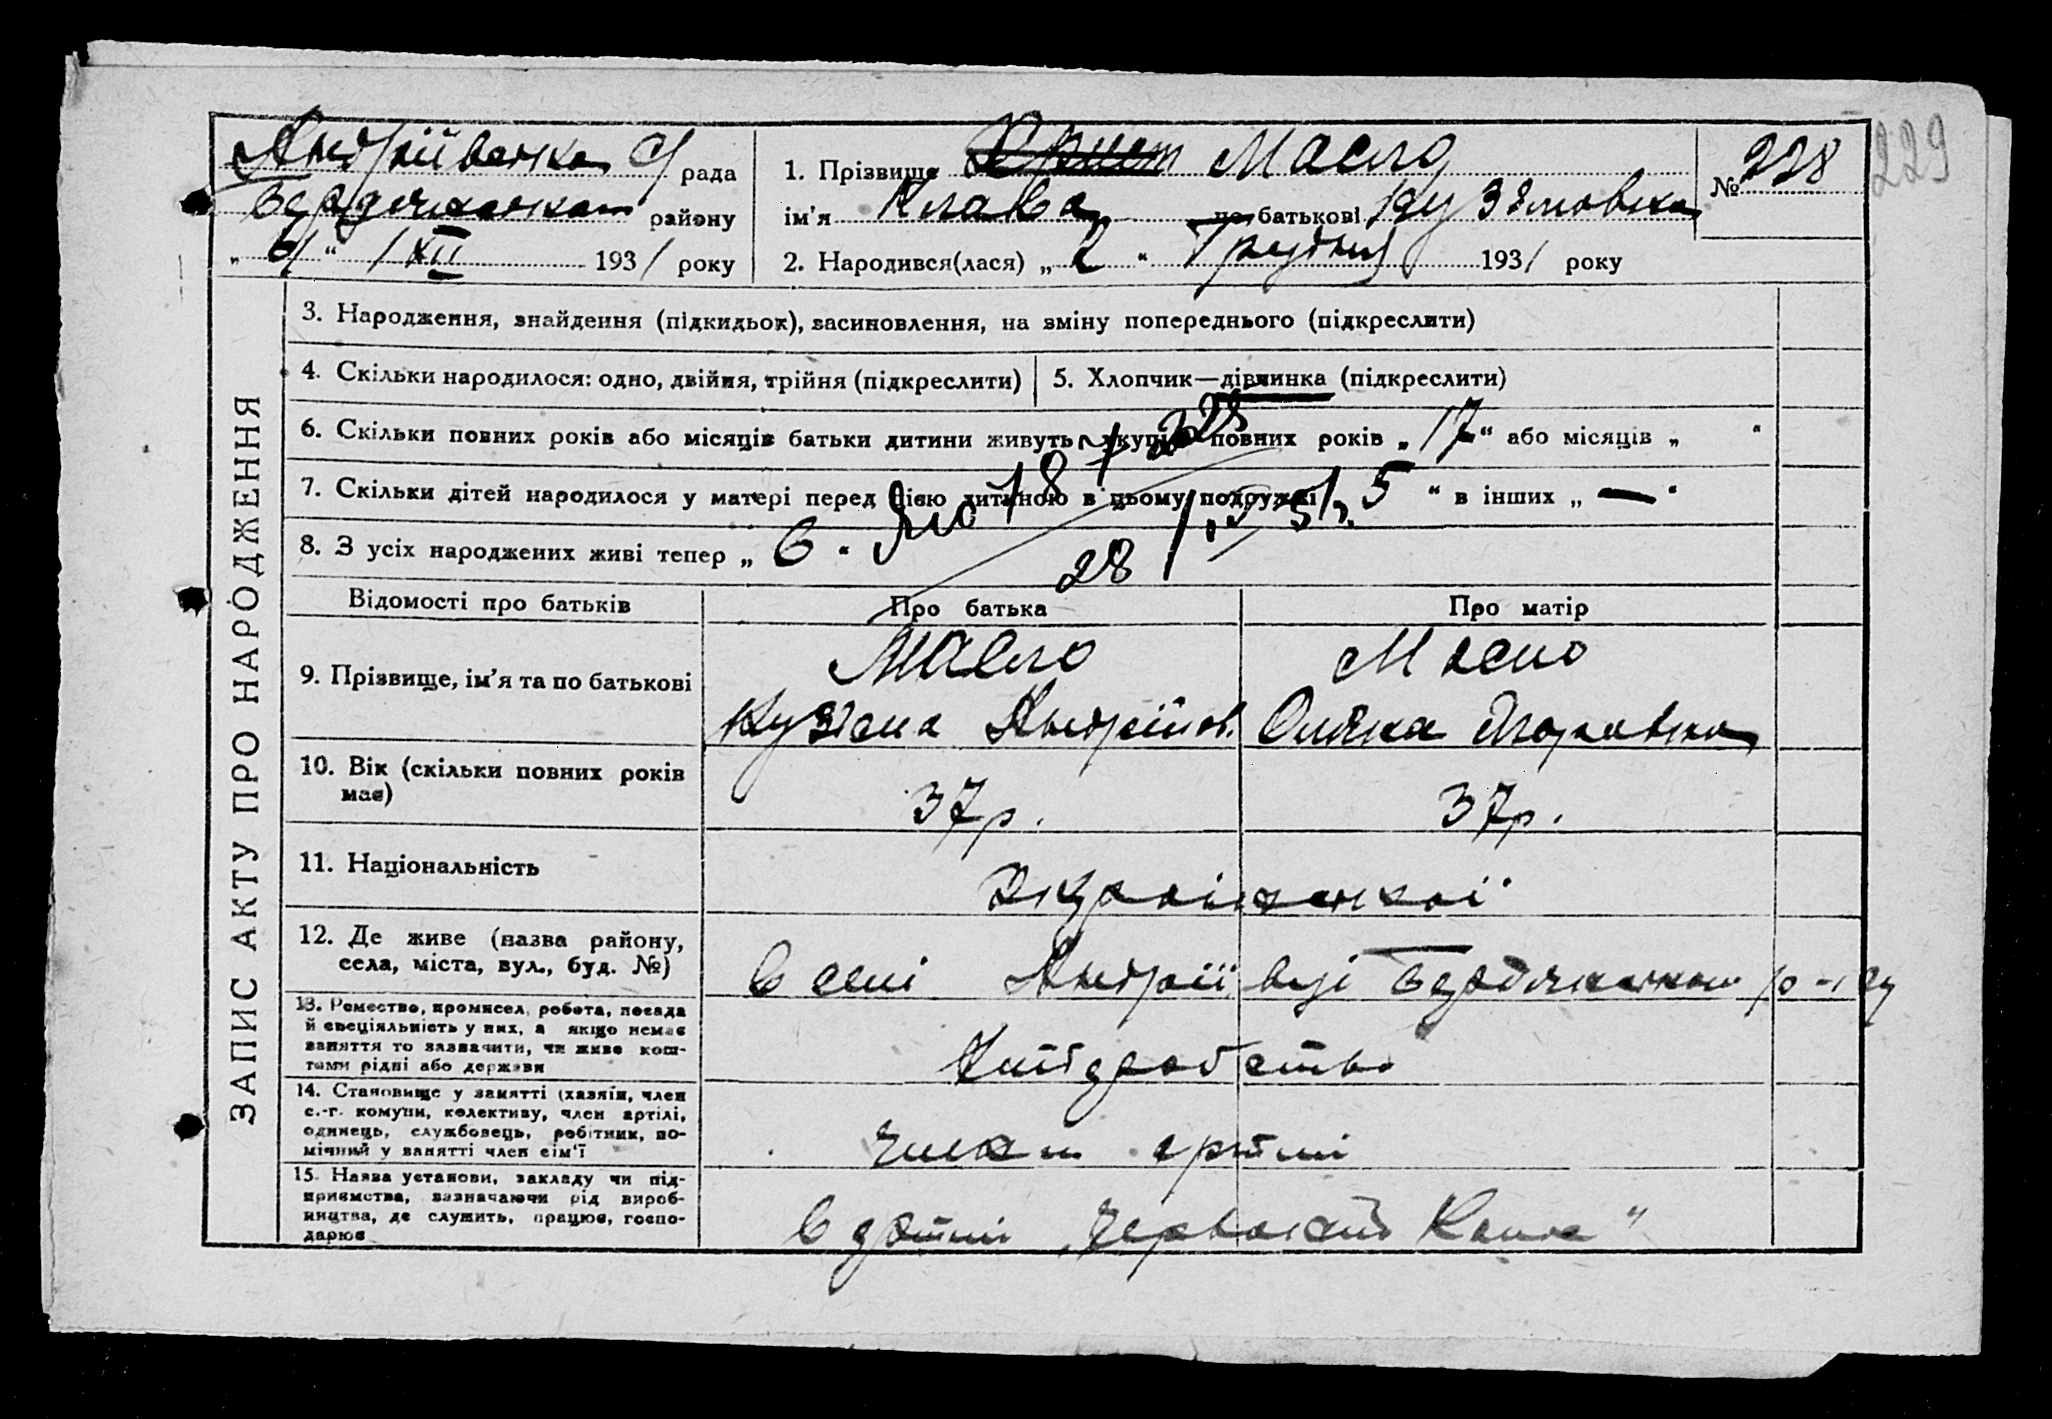 Андріївська с/рада
Бердянського району
„ 6 “ / XII 1931 року
1. Прізвище Масло
ім'я Клава по батькові Кузьмовна
2. Народився(лася) „ 2 “ Грудня 1931 року
№ 228
229
ЗАПИС АКТУ ПРО НАРОДЖЕННЯ
3. Народження, знайдення (підкидьок), засиновлення, на зміну попереднього (підкреслити)
4. Скільки народилося: одно, двійня, трійня (підкреслити)
5. Хлопчик—дівчинка (підкреслити)
6. Скільки повних років або місяців батьки дитини живуть укупі повних років „ 17 “ або місяців „ “
228
7. Скільки дітей народилося у матері перед цією дитиною в цьому подружжі 5 “ в інших „ — “
8. З усіх народжених живі тепер „ 6 “
28
Відомості про батьків
Про батька
Про матір
9. Прізвище, ім'я та по батькові
Масло
Кузьма Андрійов.
Масло
10. Вік (скільки повних років має)
37р.
37р.
11. Національність
12. Де живе (назва району,
села, міста, вул., буд. №)
в селі Андріївці Бердянськ р-ну
13. Ремество, промисел, робота, посада
й спеціяльність у них, а якщо немає
заняття то зазначити, чи живе кош-
тами рідні або держави
Хліборобство
14. Становище у занятті (хазяїн, член
с.-г. комуни, колективу, член артілі,
одинець, службовець, робітник, по-
мічний у занятті член сім'ї
член артілі
15. Назва установи, закладу чи під-
приємства, зазначаючи рід вироб-
ництва, де служить, працює, госпо-
дарює
в артілі „Червоний